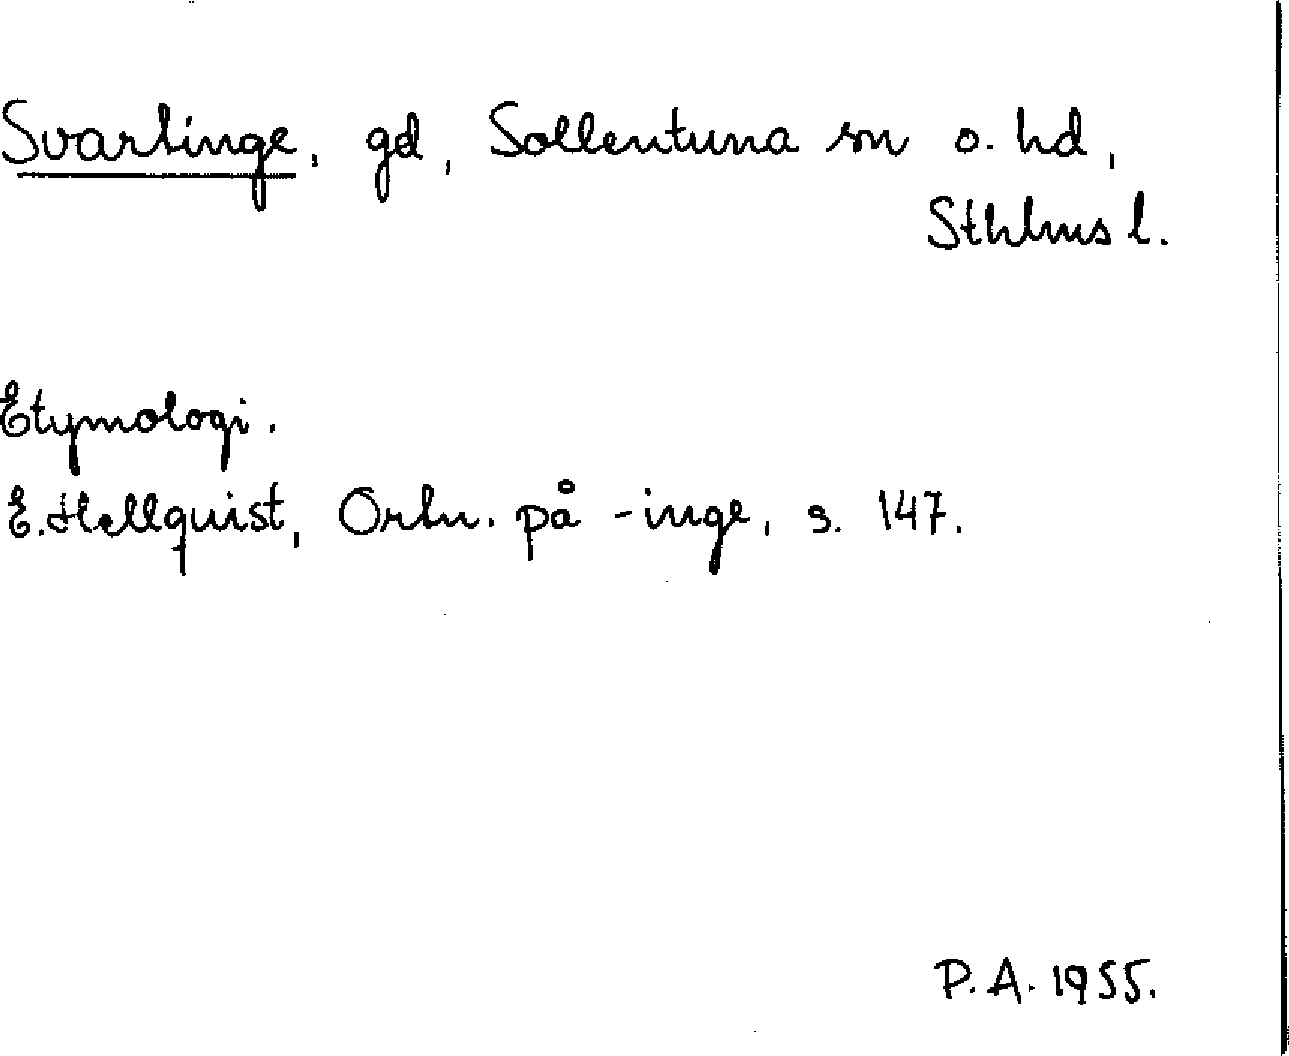 Svartinge, gd, Sollentuna sn o. hd,
Sthlms l.
Etymologi.
E. Hellquist, Ortn. på -inge, s. 147.
P.A. 1955.